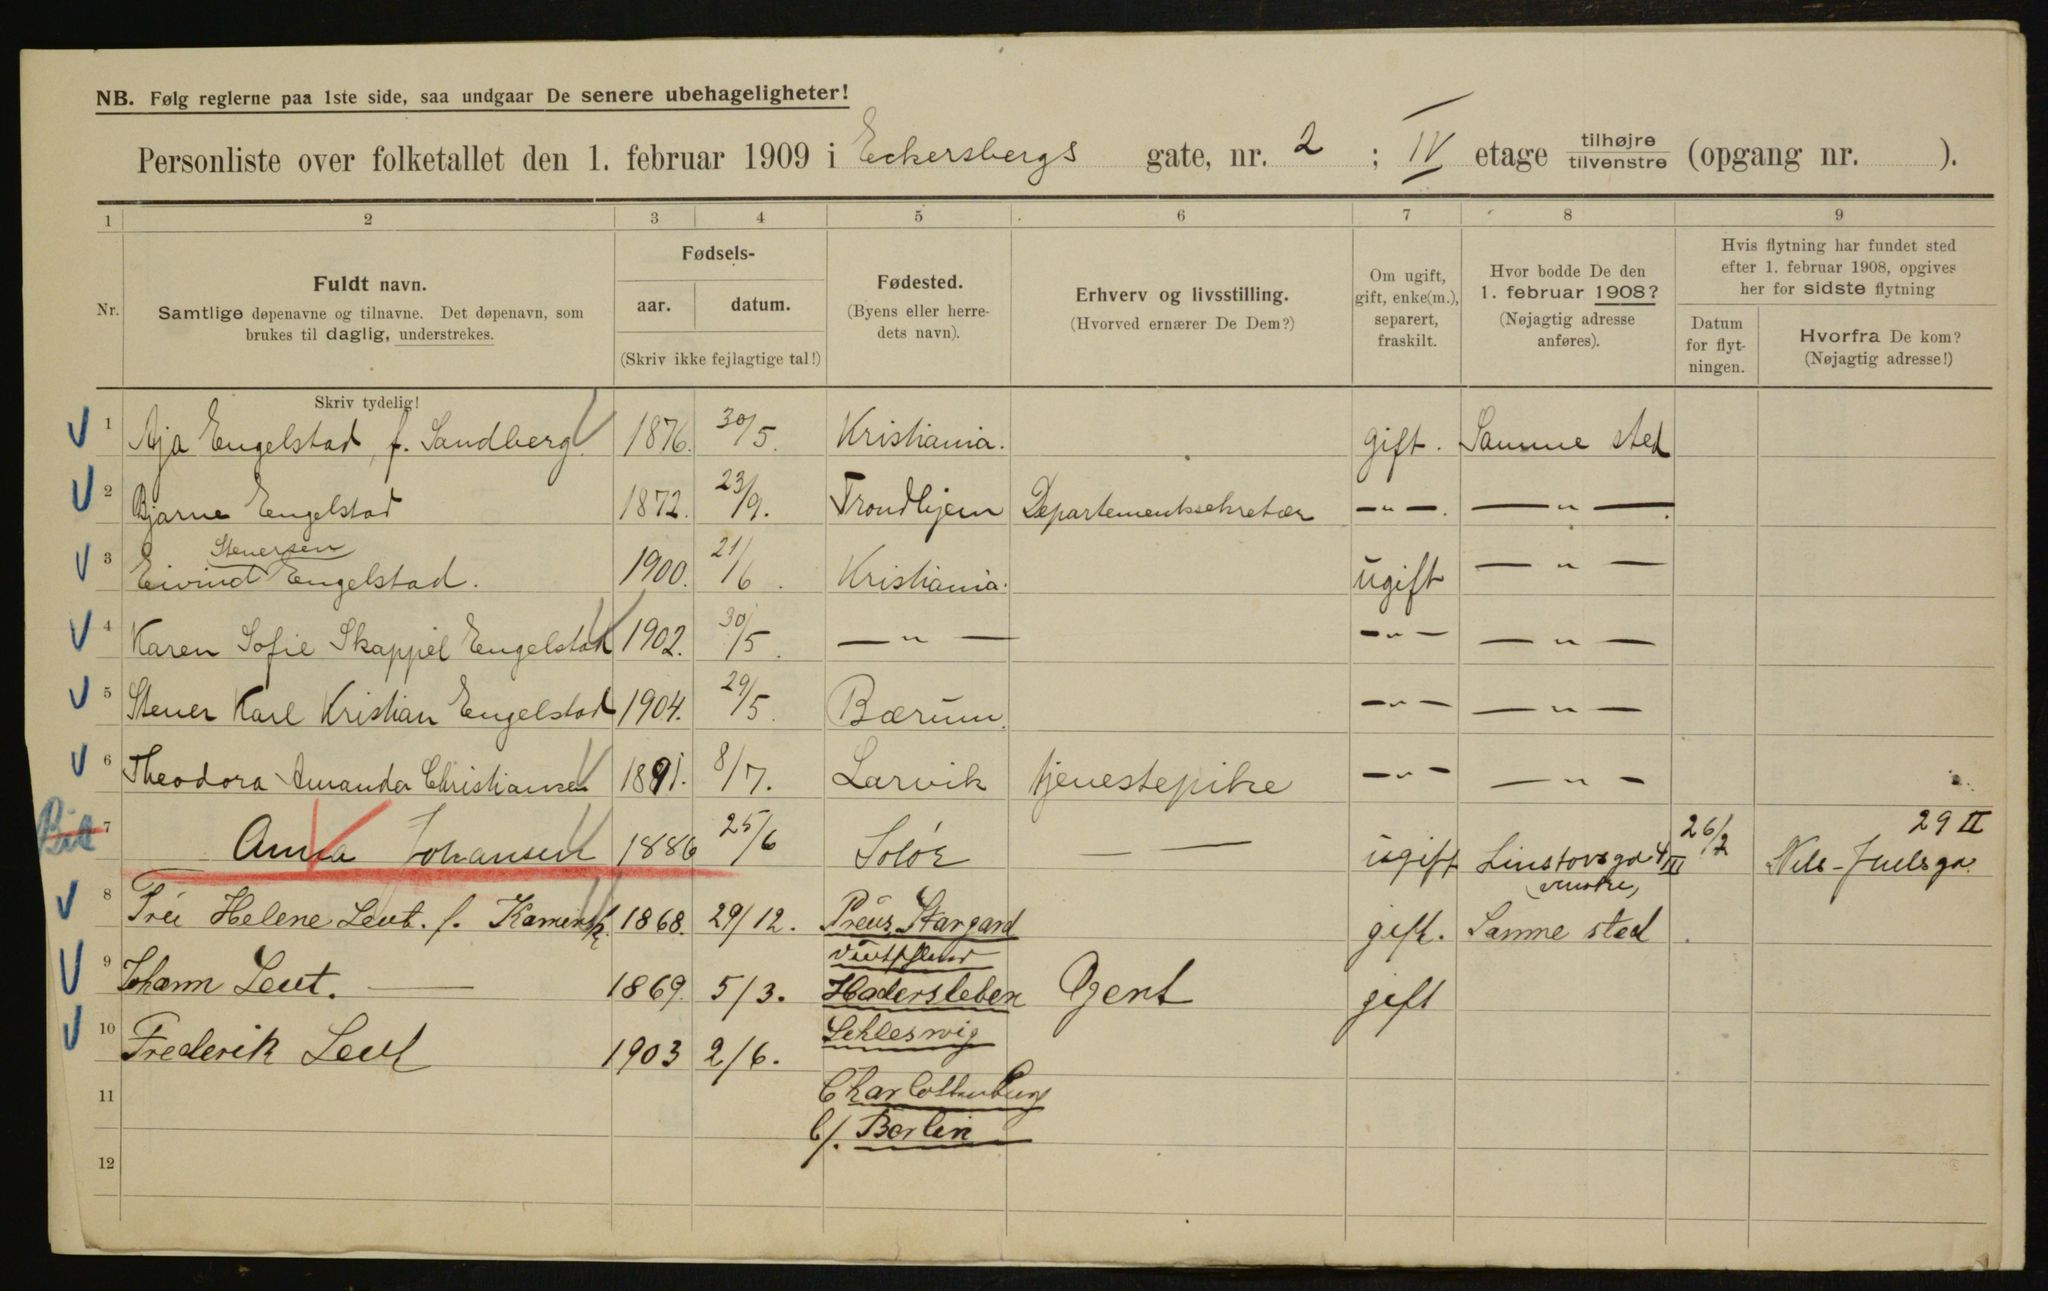 NB. Følg reglerne paa 1ste side, saa undgaar De senere ubehageligheter!
Personliste over folketallet den 1. februar 1909 i Eckersbergs gate, nr. 2 ; IV etage tilhøjre tilvenstre (opgang nr. ).
1 2 3 4 5 6 7 8 9
Nr.
Fuldt navn.
Samtlige døpenavne og tilnavne. Det døpenavn, som
brukes til daglig, understrekes.
Skriv tydelig!
Fødsels-
aar. datum.
(Skriv ikke fejlagtige tal!)
Fødested.
(Byens eller herre-
dets navn).
Erhverv og livsstilling.
(Hvorved ernærer De Dem?)
Om ugift,
gift, enke(m.),
separert,
fraskilt.
Hvor bodde De den
1. februar 1908?
(Nøjagtig adresse
anføres).
Hvis flytning har fundet sted
efter 1. februar 1908, opgives
her for sidste flytning
Datum
for flyt-
ningen.
Hvorfra De kom?
(Nøjagtig adresse!)
1 Aja Engelstad, f. Sandberg. 1876. 30/5. Kristiania. gift. Samme sted
2 Bjarne Engelstad 1872. 23/9. Trondhjem Departementssekretær — " —. — " —.
Stenersen
3 Eivind Engelstad. 1900. 21/6. Kristiania. ugift — " —
4 Karen Sofie Skappel Engelstad 1902. 30/5. — " — — " — — " —
5 Stener Karl Kristian Engelstad 1904. 29/5. Bærum. — " — — " —
6 Theodora Amanda Christiansen 1891. 8/7. Larvik tjenestepike — " — — " —
7 Anna Johansen 1886 25/6 Solør — — ugift Linstovsga 4 III 26/2 29 II
venstre, Nils-Juelsga.
8 Helene Leut. f. 1868. 29/12. Preus. Stargard gift. Samme sted
9 Johann Leut. — 1869. 5/3. Hadersleben Agent gift
Schleswig
10 Frederik Leut 1903 2/6.
11 Charlottenburg
b/. Berlin
12